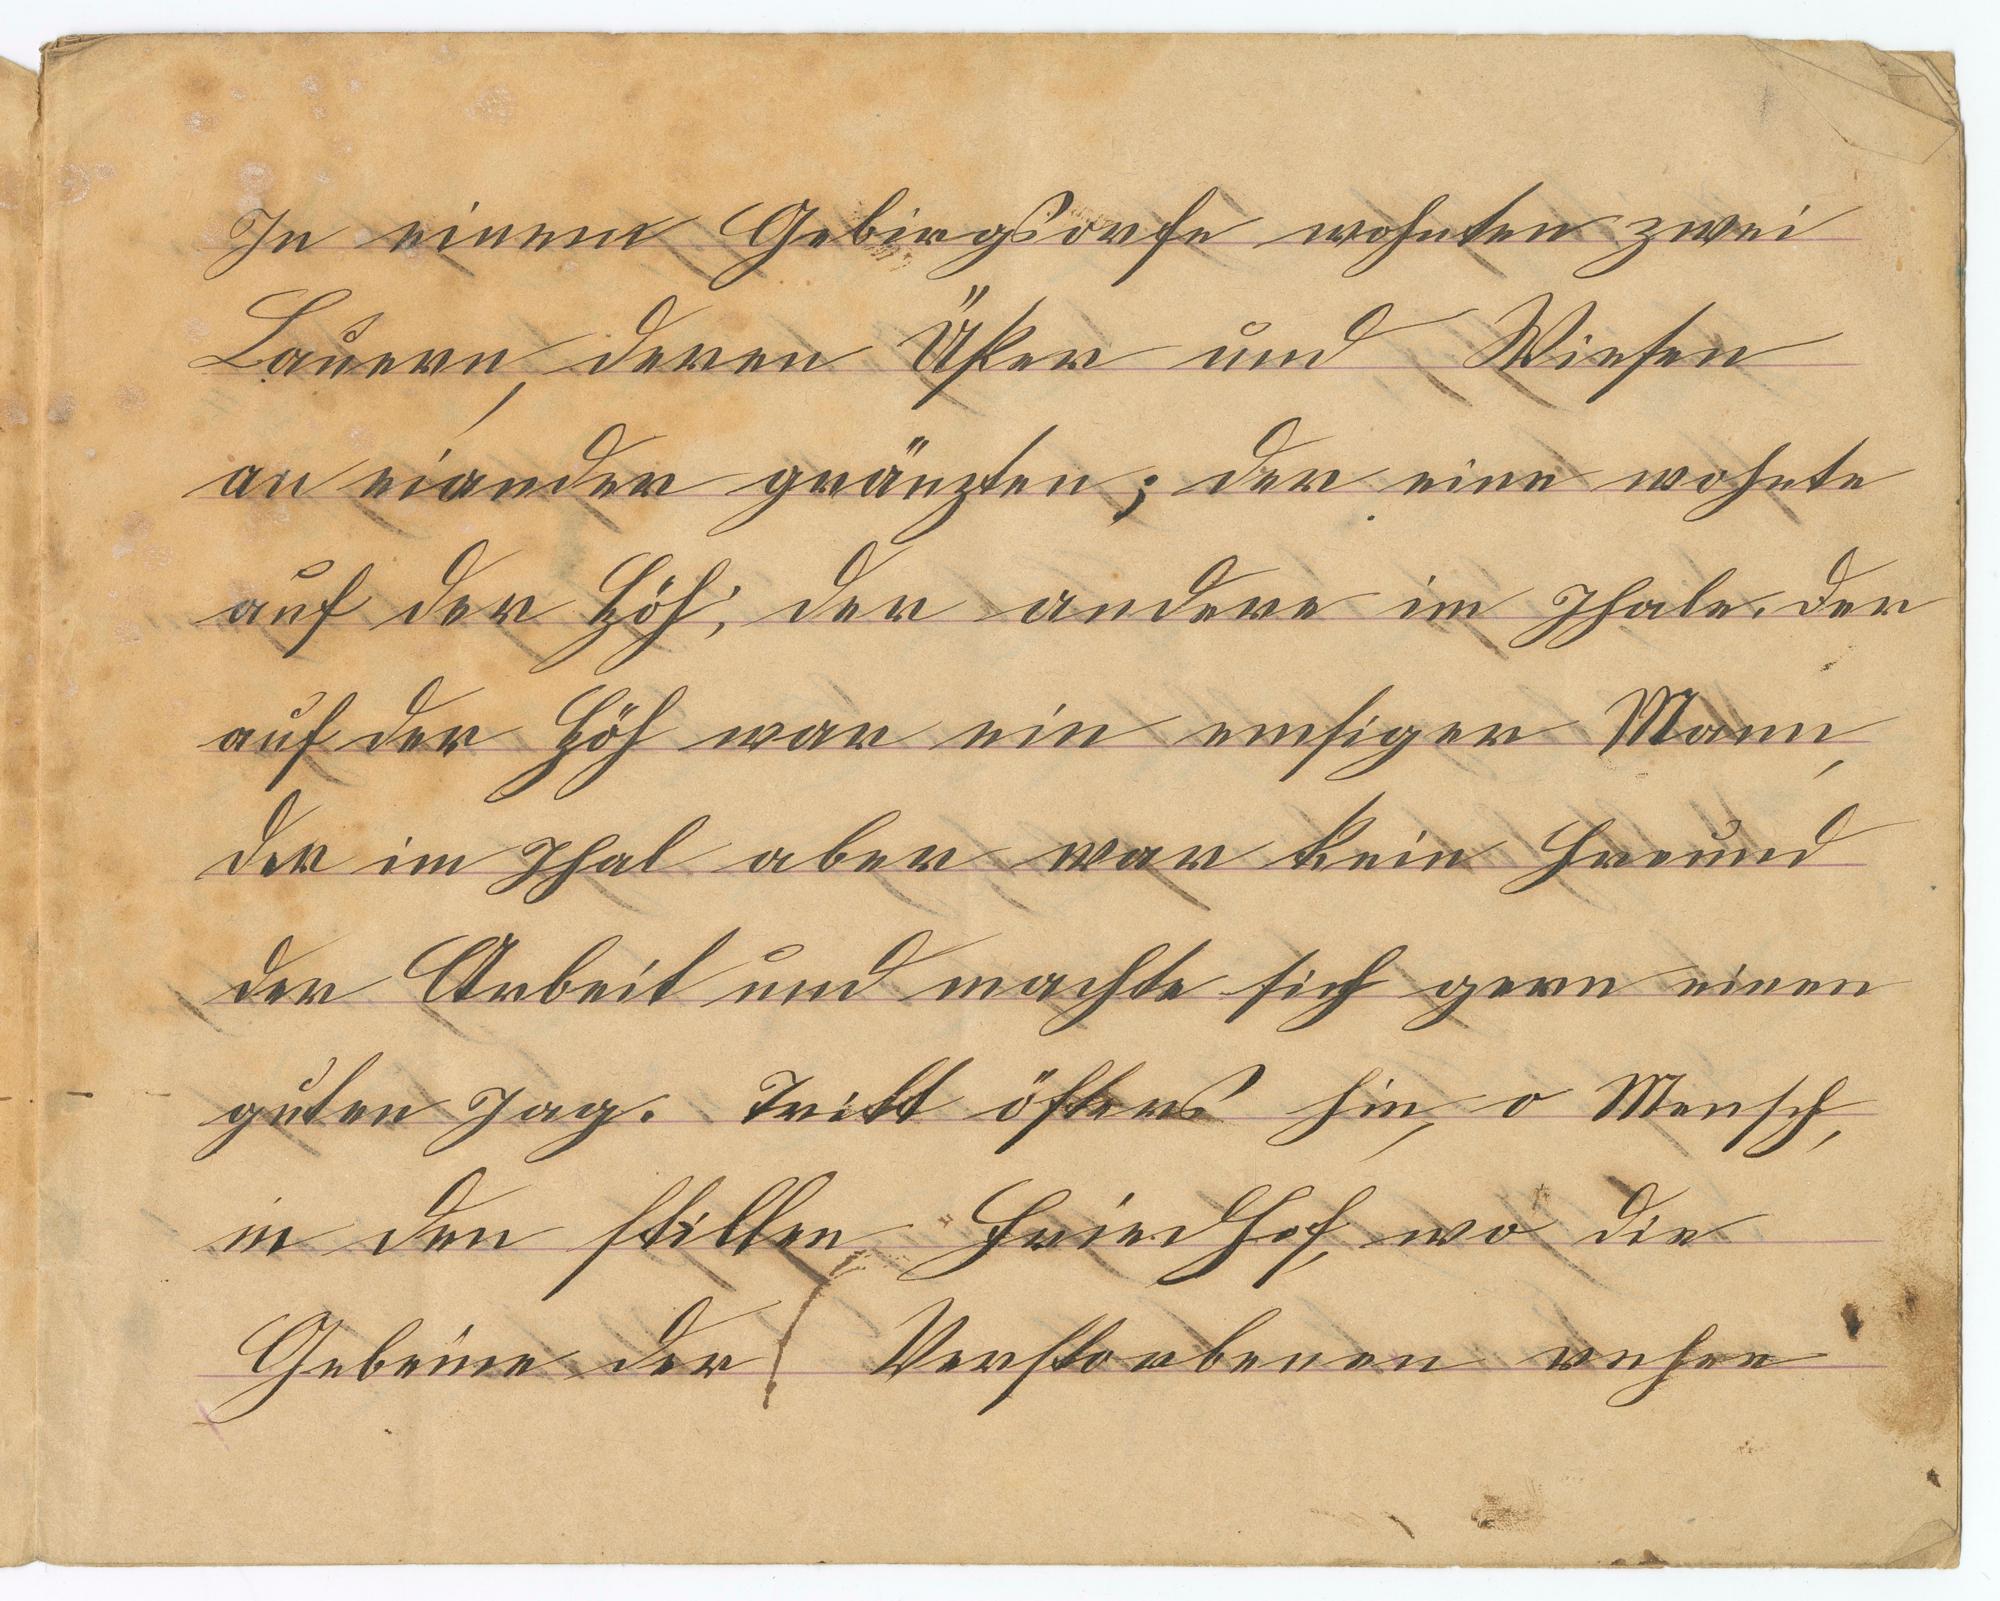 In einem Gebirgsorfe wohnten zwei
Bauern, deren Äker und Wiesen
an eiander gränzten; der eine wohnte
auf der Höh', der andere im Thale. der
auf der Höh war ein emsiger Mann,
der im Thal aber war kein Freund
der Arbeit und machte sich gern einen
guten Tag. Tritt öfters hin, o Mensch,
in den stillen Friedhof, wo die
Gebeine der Verstorbenen ruhen